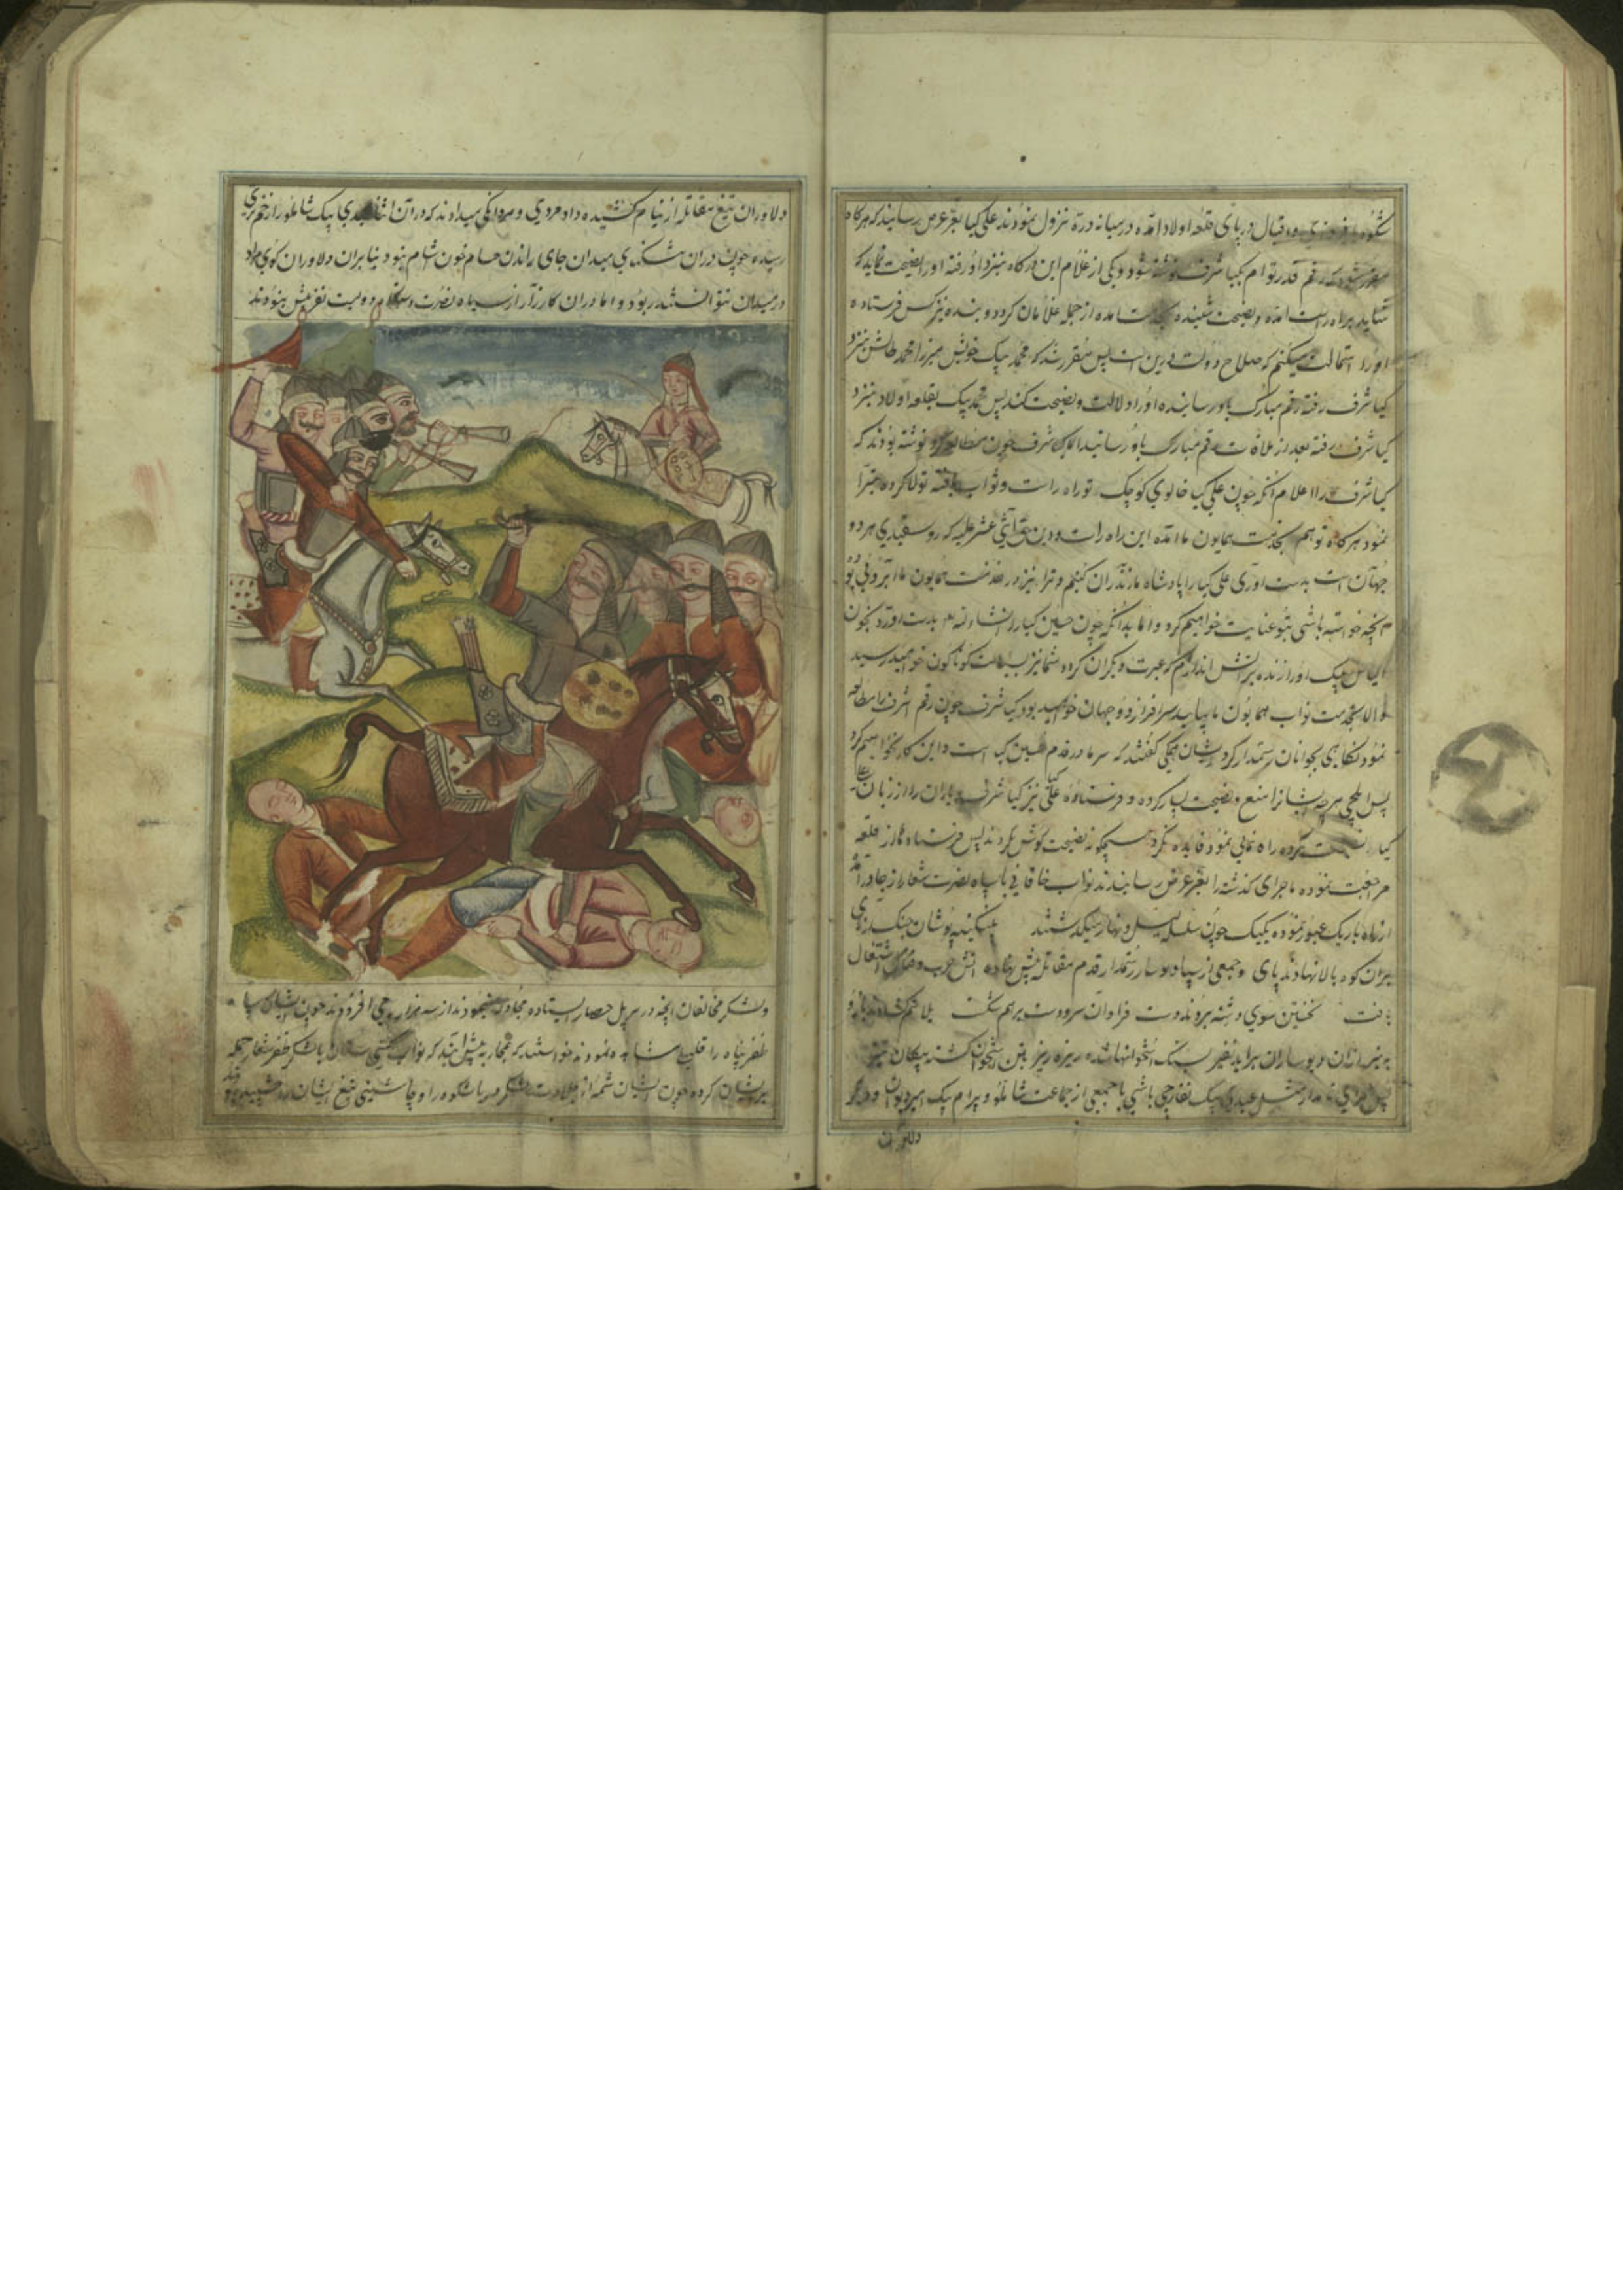 در پای قلعه اولاد آمده در میانه دره نزول نمودند علی کیا بعز عرض رسانید که هرکاه
رقم قدر توام بکیا شرف نوشته شود و یکی از غلام این درکاه بنزد او رفته او را نصیحت نماید که
شاید براه راست آمده و نصیحت شنیده بخدمت آمده از جمله غلامان کردد و بنده نیز کس فرستاده
او را استمالت میکنم که صلاح دولت درین است پس مقرر شد که محمد بیک خویش میرزا محمد طالش بنزد
کیا شرف رفته رقم مبارک باو رسانیده او را دلالت و نصیحت کند پس محمد بیک بقلعه اولاد بنزد
کیا شرف رفته بعد از ملاقات رقم مبارک باو رسانید کیا شرف چون مطالعه کرد نوشته بودند که
کیا شرف را اعلام آنکه چون علی کیا خالوی کوچک تو راه راست و ثواب یافته تولا کرده تبرا
نمود هرکاه تو هم بخدمت همایون ما آمده این راه راست و دین حق اثنی عشر علیه که رو سفیدی هر دو
جهان است بدست اوری علی کیا را پادشاه مازندران کنیم و ترا نیز در خدمت همایون ما آبرویی بود
آنچه خواسته باشی بتو عنایت خواهیم کرد و اما بدانکه چون حسین کیا را انشاء الله بدست اورد بخون
الیاس بیک او را زنده بر آتش اندازم که عبرت دیکران کردد شما نیز بسیاست کوناکون خواهید رسید
والا بخدمت نواب همایون ما بیایید سرافراز دو جهان خواهید بود کیا شرف چون رقم اشرف را مطالعه
نمود نکاهی بجوانان رستمدار کرد ایشان همکی کفتند که سر ما در قدم حسین کیا است و این کار نخواهیم کرد
پس ایلچی هر چه ایشانرا منع و نصیحت بسیار کرده و فرستاده علی کیا نیز کیا شرف و یاران را از زبان علی
کیا نصیحت کرده راه نمایی نمود فایده نکرد هیچکونه نصیحت کوش نکردند پس فرستادها از قلعه
مراجعت نموده ماجرای کذشته را بعز عرض رسانیدند نواب خاقانی با سپاه نصرت شعار از جا در آمد
از راه باریک عبور نموده یکیک چون سلسله لیل و نهار میکذشتند پلنکینه پوشان جنک آزمای
بران کوه بالا نهادند پای و جمعی از سپاه دیوسار رستمدار قدم مقاتله پیش نهاده آتش حرب و قتال اشتعال
یافت نخستین سوی دشنه بردند دست فراوان سر و دست بر هم شکست
بهر سر ازان دیوساران سنک استخوانها شده ریزه ریز بتن استخوان کشته پیکان تیز
مثل عبدی بیک نقارچی باشی با جمعی از جماعت شاملو و بیرام بیک امیر دیوان و دیکر
دلاوران
دلاوران تیغ مقاتله از نیام کشیده داد مردی و مردانکی میدادند که در آن اثنا عبدی بیک شاملو را زخم تیری
رسیده چون دران تنکنای میدان جای راندن حسام خون آشام نبود بنابران دلاوران کوی مراد
در میدان نتوانستند ربود و اما دران کارزار از سپاه نصرت فرجام دویست نفر بیش نبودند
و لشکر مخالفان آنچه در سر پل حصار ایستاده مجادله مینمودند از سه هزار می افزودند چون ایشان سپاه
ظفر پناه را قلیل مشاهده نمودند خواستند که بمحاربه پیش آیند که نواب کیتی ستان با لشکر ظفر شعار حمله
بر ایشان کرده چون ایشان شمه از جلادت لشکر دریا شکوه را و چاشنی تیغ ایشان را چشیده بودند